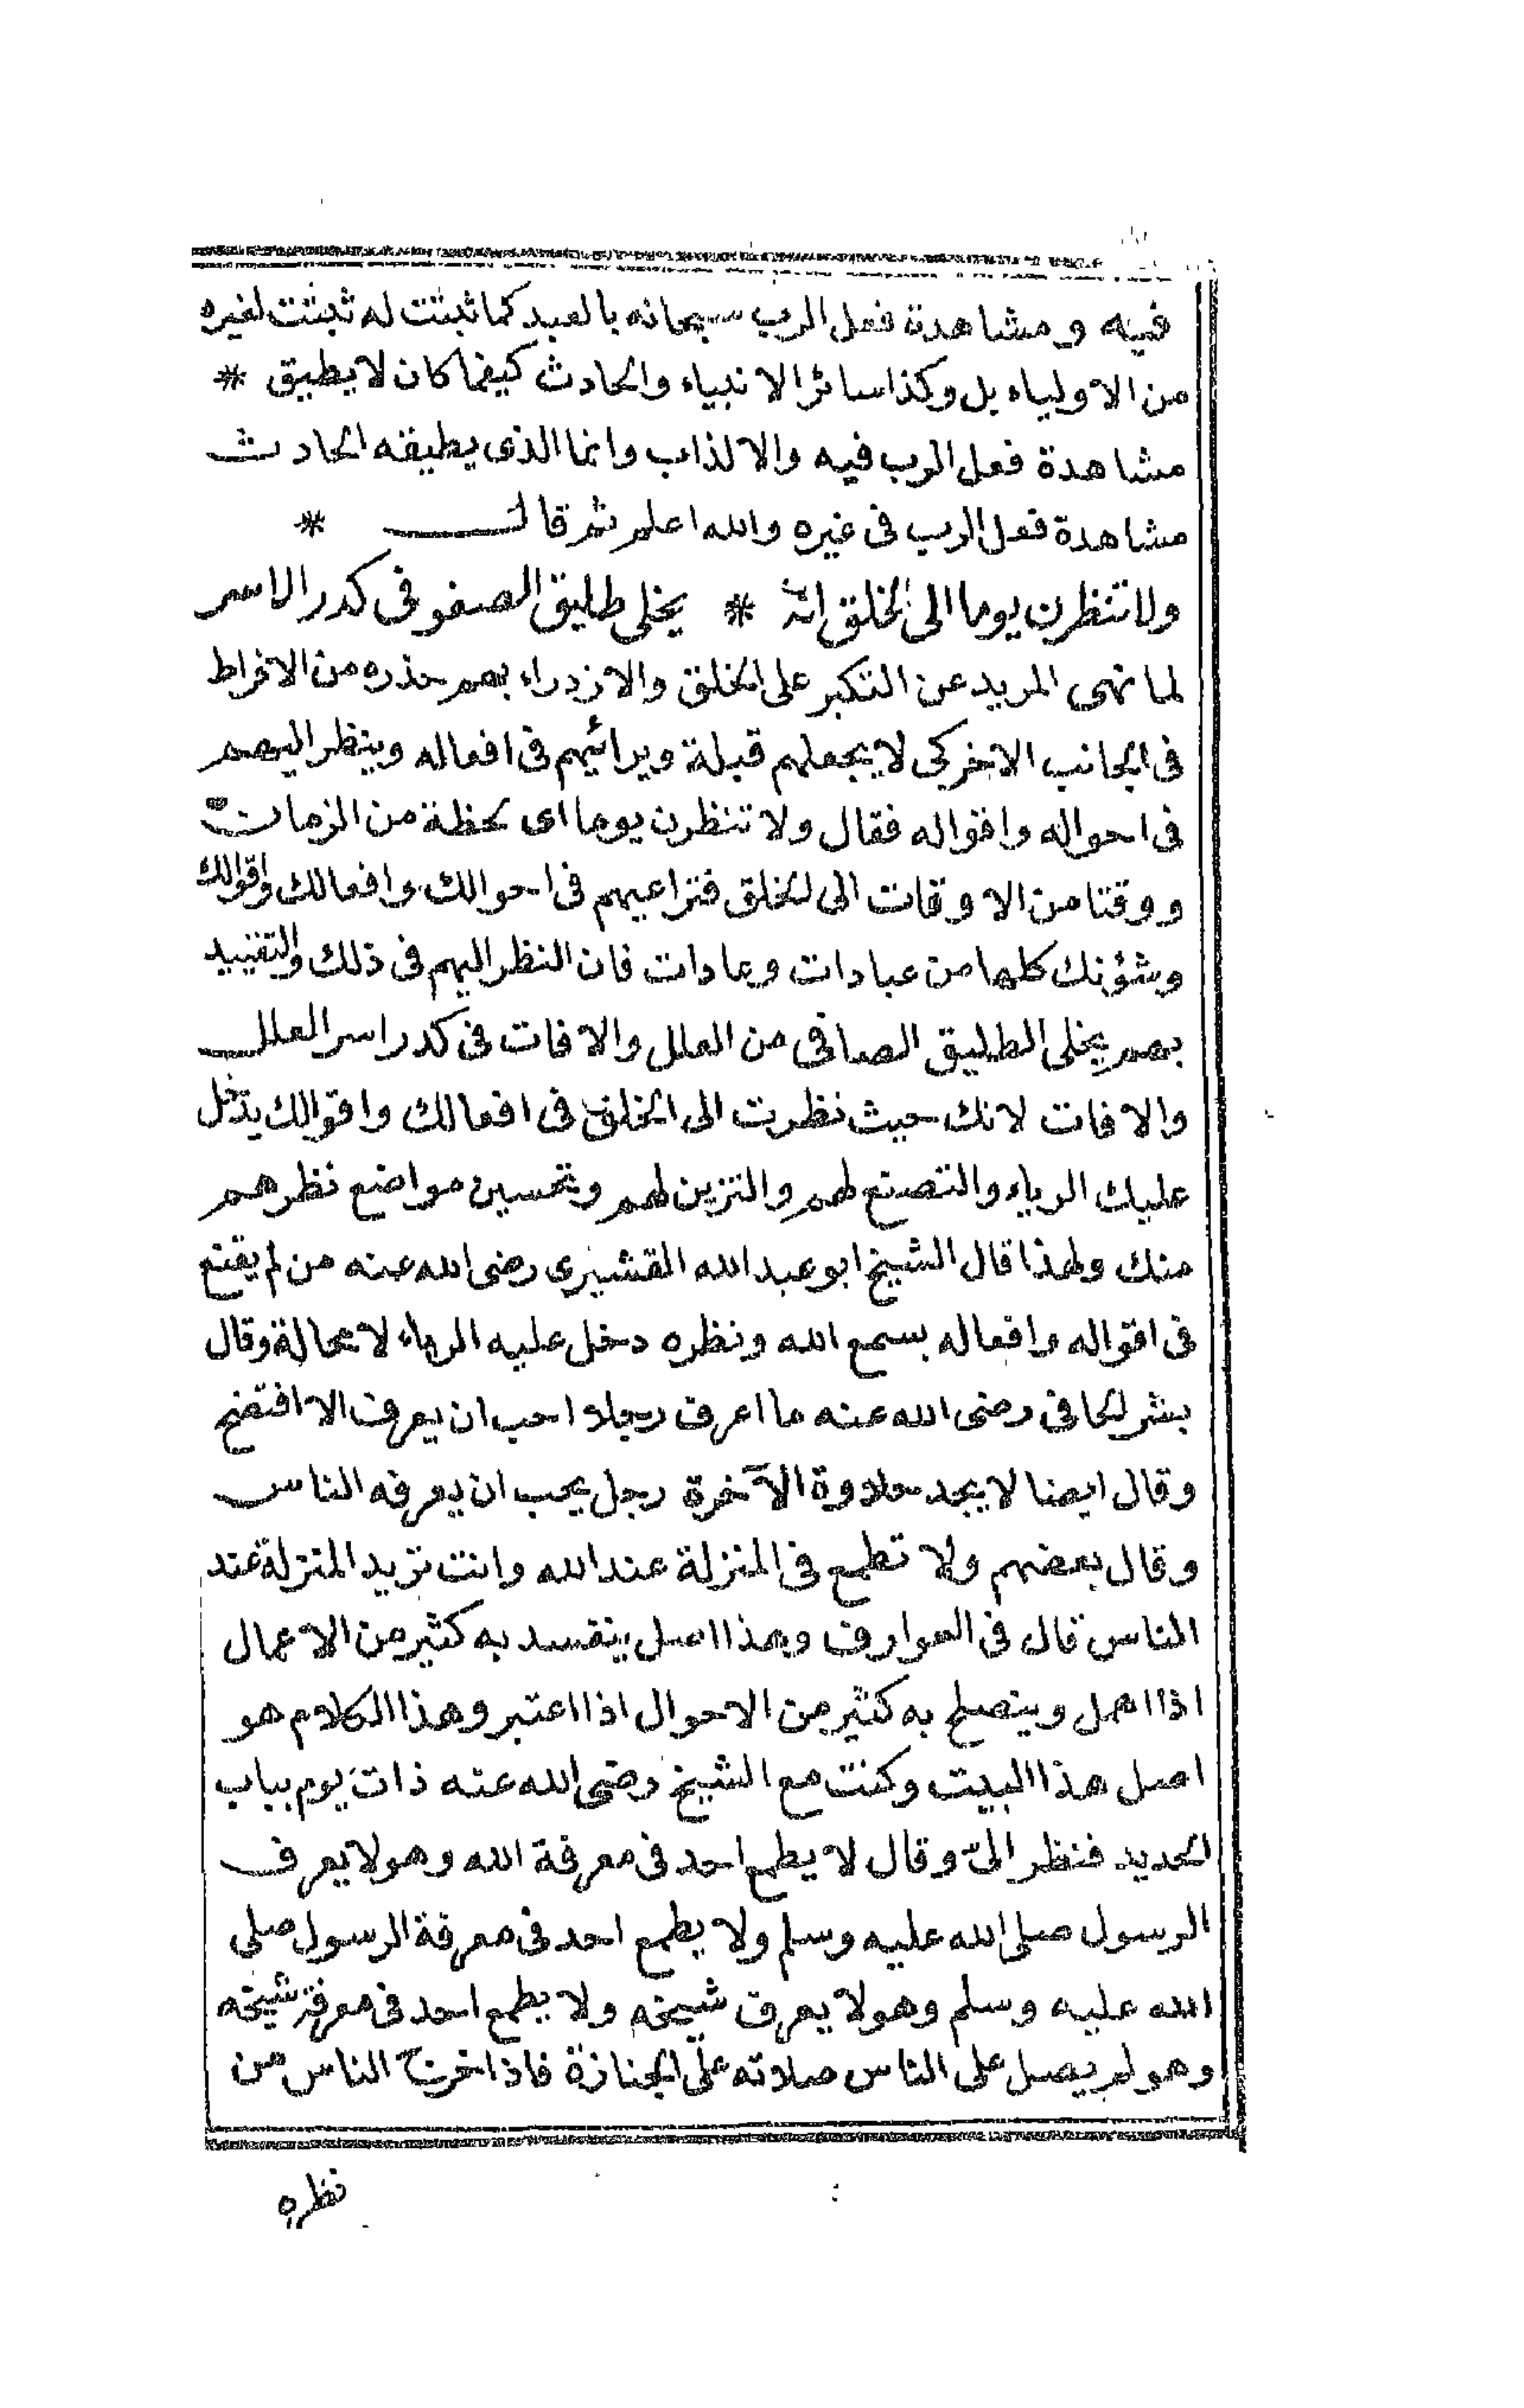 فيه ومشاهدة فعل الرب سبحانه بالعبد كما ثبتت له ثبتت لغيره
من الاولياء بل وكذا سائر الانبياء والحادث كيفما كان لا يطيق *
مشاهدة فعل الرب فيه والا لذاب وانما الذى يطيقه الحادث
مشاهدة فعل الرب فى غيره والله اعلم ثم قال *
ولا تنظرن يوما الى الخلق انه * يخلى طليق الصفو فى كدر الاسر
لما نهى المريد عن التكبر على الخلق والازدراء بهم حذره من الافراط
فى الجانب الاخر كى لا يجعلهم قبلة ويرائيهم فى افعاله وينظر اليهم
فى احواله واقواله فقال ولا تنظرن يوما اى لحظة من الزمان
ووقتا من الاوقات الى الخلق فتراعيهم فى احوالك وافعالك واقوالك
وشؤنك كلها من عبادات وعادات فان النظر اليهم فى ذلك والتقييد
بهم يخلى الطليق الصافى من العلل والافات فى كدر اسر العلل
والافات لانك حيث نظرت الى الخلق فى افعالك واقوالك يدخل
عليك الرياء والتصنع لهم والتزين لهم وتحسين مواضع نظرهم
منك ولهذا قال الشيخ ابو عبد الله القشيرى رضى الله عنه من لم يقنع
فى اقواله وافعاله بسمع الله ونظره دخل عليه الرياء لا محالة وقال
بشر الحافى رضى الله عنه ما اعرف رجلا احب ان يعرف الا افتضح
وقال ايضا لا يجد حلاوة الآخرة رجل يحب ان يعرفه الناس
وقال بعضهم ولا تطمع فى المنزلة عند الله وانت تريد المنزلة عند
الناس قال فى العوارف وهذا اصل ينفسد به كثير من الاعمال
اذا اهمل وينصلح به كثير من الاحوال اذا اعتبر وهذا الكلام هو
اصل هذا البيت وكنت مع الشيخ رضى الله عنه ذات يوم بباب
الحديد فنظر الىّ وقال لا يطمع احد فى معرفة الله وهو لا يعرف
الرسول صلى الله عليه وسلم ولا يطمع احد فى معرفة الرسول صلى
الله عليه وسلم وهو لا يعرف شيخه ولا يطمع احد فى معرفة شيخه
وهو لم يصل على الناس صلاته على الجنازة فاذا خرج الناس من
نظره